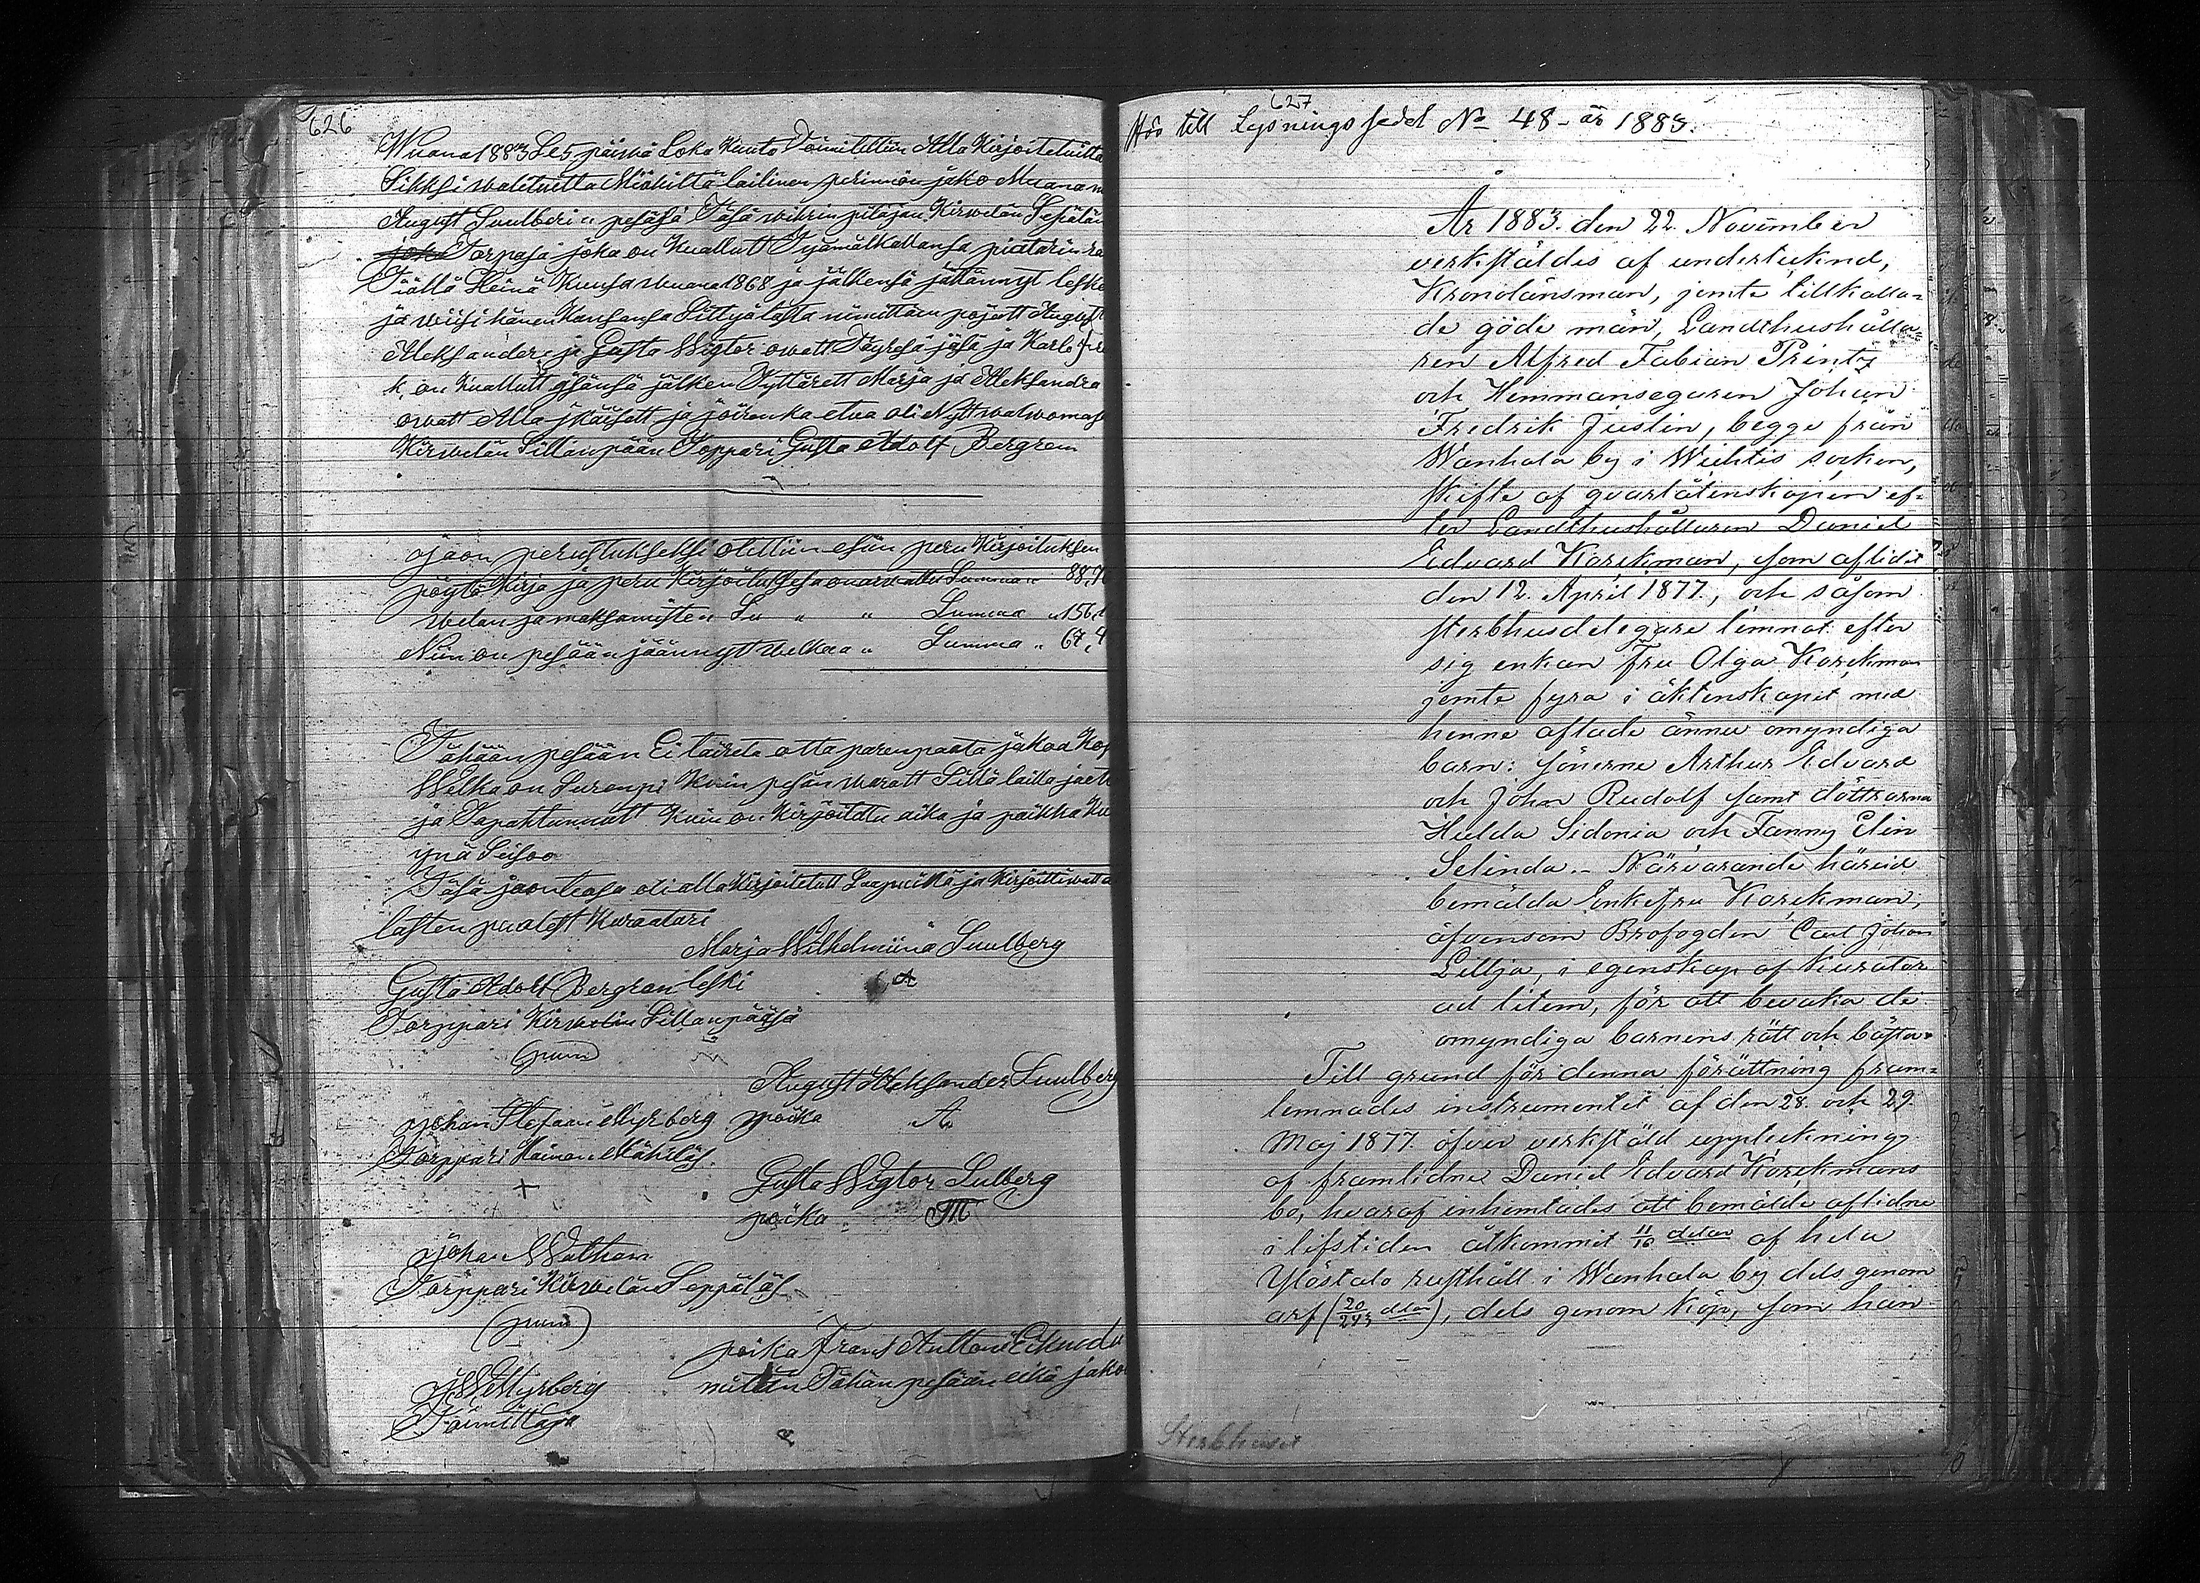 626
Wuana 1883 Se 5 päivä Loka Kuuta Toimitettiin Alla Kirjoitetuitta
Sikksi walituitta Miähiltä lailinen perinnön jako Muana
August Suulberin pesäsä Täsä wihrin pitäjän Kirwelän Sepälän
joka Torpasa joka on Kuallutt Työmätkallansa piatarin
Tiällä Heinä Kuusa wuana 1868 ja jälkensä jättännyt lesken
ja wiisi hänen Kansansa Sittyä lasta nimittäin pojatt August
Aleksanderi ja Gusta Wigtor owatt Täysisä jäsä ja Karlo
k. on Kuallutt isänsä jälken Tyttärett Marja ja Aleksandra
owatt Alla jkäisett ja joirenka etua oli Nytt walwomasa
Kirwelän Sillänpään Torppari Gusta Adolf Bergrem
ojaon perustukseksi otettiin esiin peru Kirjoituksen
pöytö Kirja ja peru Kirjoituksesa on arwattu Summan 88,7
welan ja maksamisten Su " " Summa " 156,
Niin on pesään jäännytt welkaa " Summa " 67,4
Tähään pesään Ei taireta otta parenpaata jakoa Kos
Welka on Surenpi Kuin pesän waratt Sillä lailla jaettu
ja Tapahtunutt Kuin on Kirjoitettu aika ja paikka Ku
ynä Seisoo
Täsä jaonteosa oli alla Kirjoitetutt Saapuilla ja Kirjoittiwatt
lasten puolest Kuraatari
Marja Wilhelmiina Suulberg
Gusta Adolf Bergran leski
Torppari Kirwelän Sillanpääsä
(puum)
August Aleksander Suulberg
Johan Stefaan Myrberg poika A
Torppari Hainon Mähiläs
+
Gusta Wigtor Sulberg
poika M
Johan Waltham
Torppari Kirwelän Seppäläs
(puum)
poika Frans Anttoni Ekund
J W Myrberg mittiin Tähän pesään eikä jako
Toimittaja
627
Hör till Lysningssedel No 48 - år 1883.
År 1883. den 22. November
verkställdes af undertecknad,
Kronolänsman, jemte tillkalla=
de gode män, Landthushålla=
ren Alfred Fabian Printz
och Hemmansegaren Johan
Fredrik Justin, begge från
Wanhala by i Wichtis socken,
skifte af qvarlåtenskapen ef=
ter Landthushållaren Daniel
Edvard Korckman, som aflidit
den 12. April 1877, och såsom
sterbhusdelegare lemnat efter
sig enkan Fru Olga Korckman
jemte fyra i äktenskapet med
henne aflade ännu omyndiga
barn: sönerne Arthur Edvard
och John Rudolf samt döttrarna
Hulda Sidonia och Fanny Elin
Selinda. - Närvarande häreid
bemälda Enkefru Korckman,
äfvensom Brofogden Carl Johan
Lillja, i egenskap af Kurator
ad litem, för att bevaka de
omyndiga barnens rätt och bästa.
Till grund för denna förättning fram=
lemnades instrumentet af den 28. och 29.
Maj 1877 öfver verkstäld uppteckning
af framlidne Daniel Edvard Korckmans
bo, hvaraf inhemtades att bemälde aflidne
i lifstiden åtkommit 11/16 delar af hela
Ylöstalo rusthåll i Wanhala by dels genom
arf (20/243 delar), dels genom köp, som han
Sterbhuset